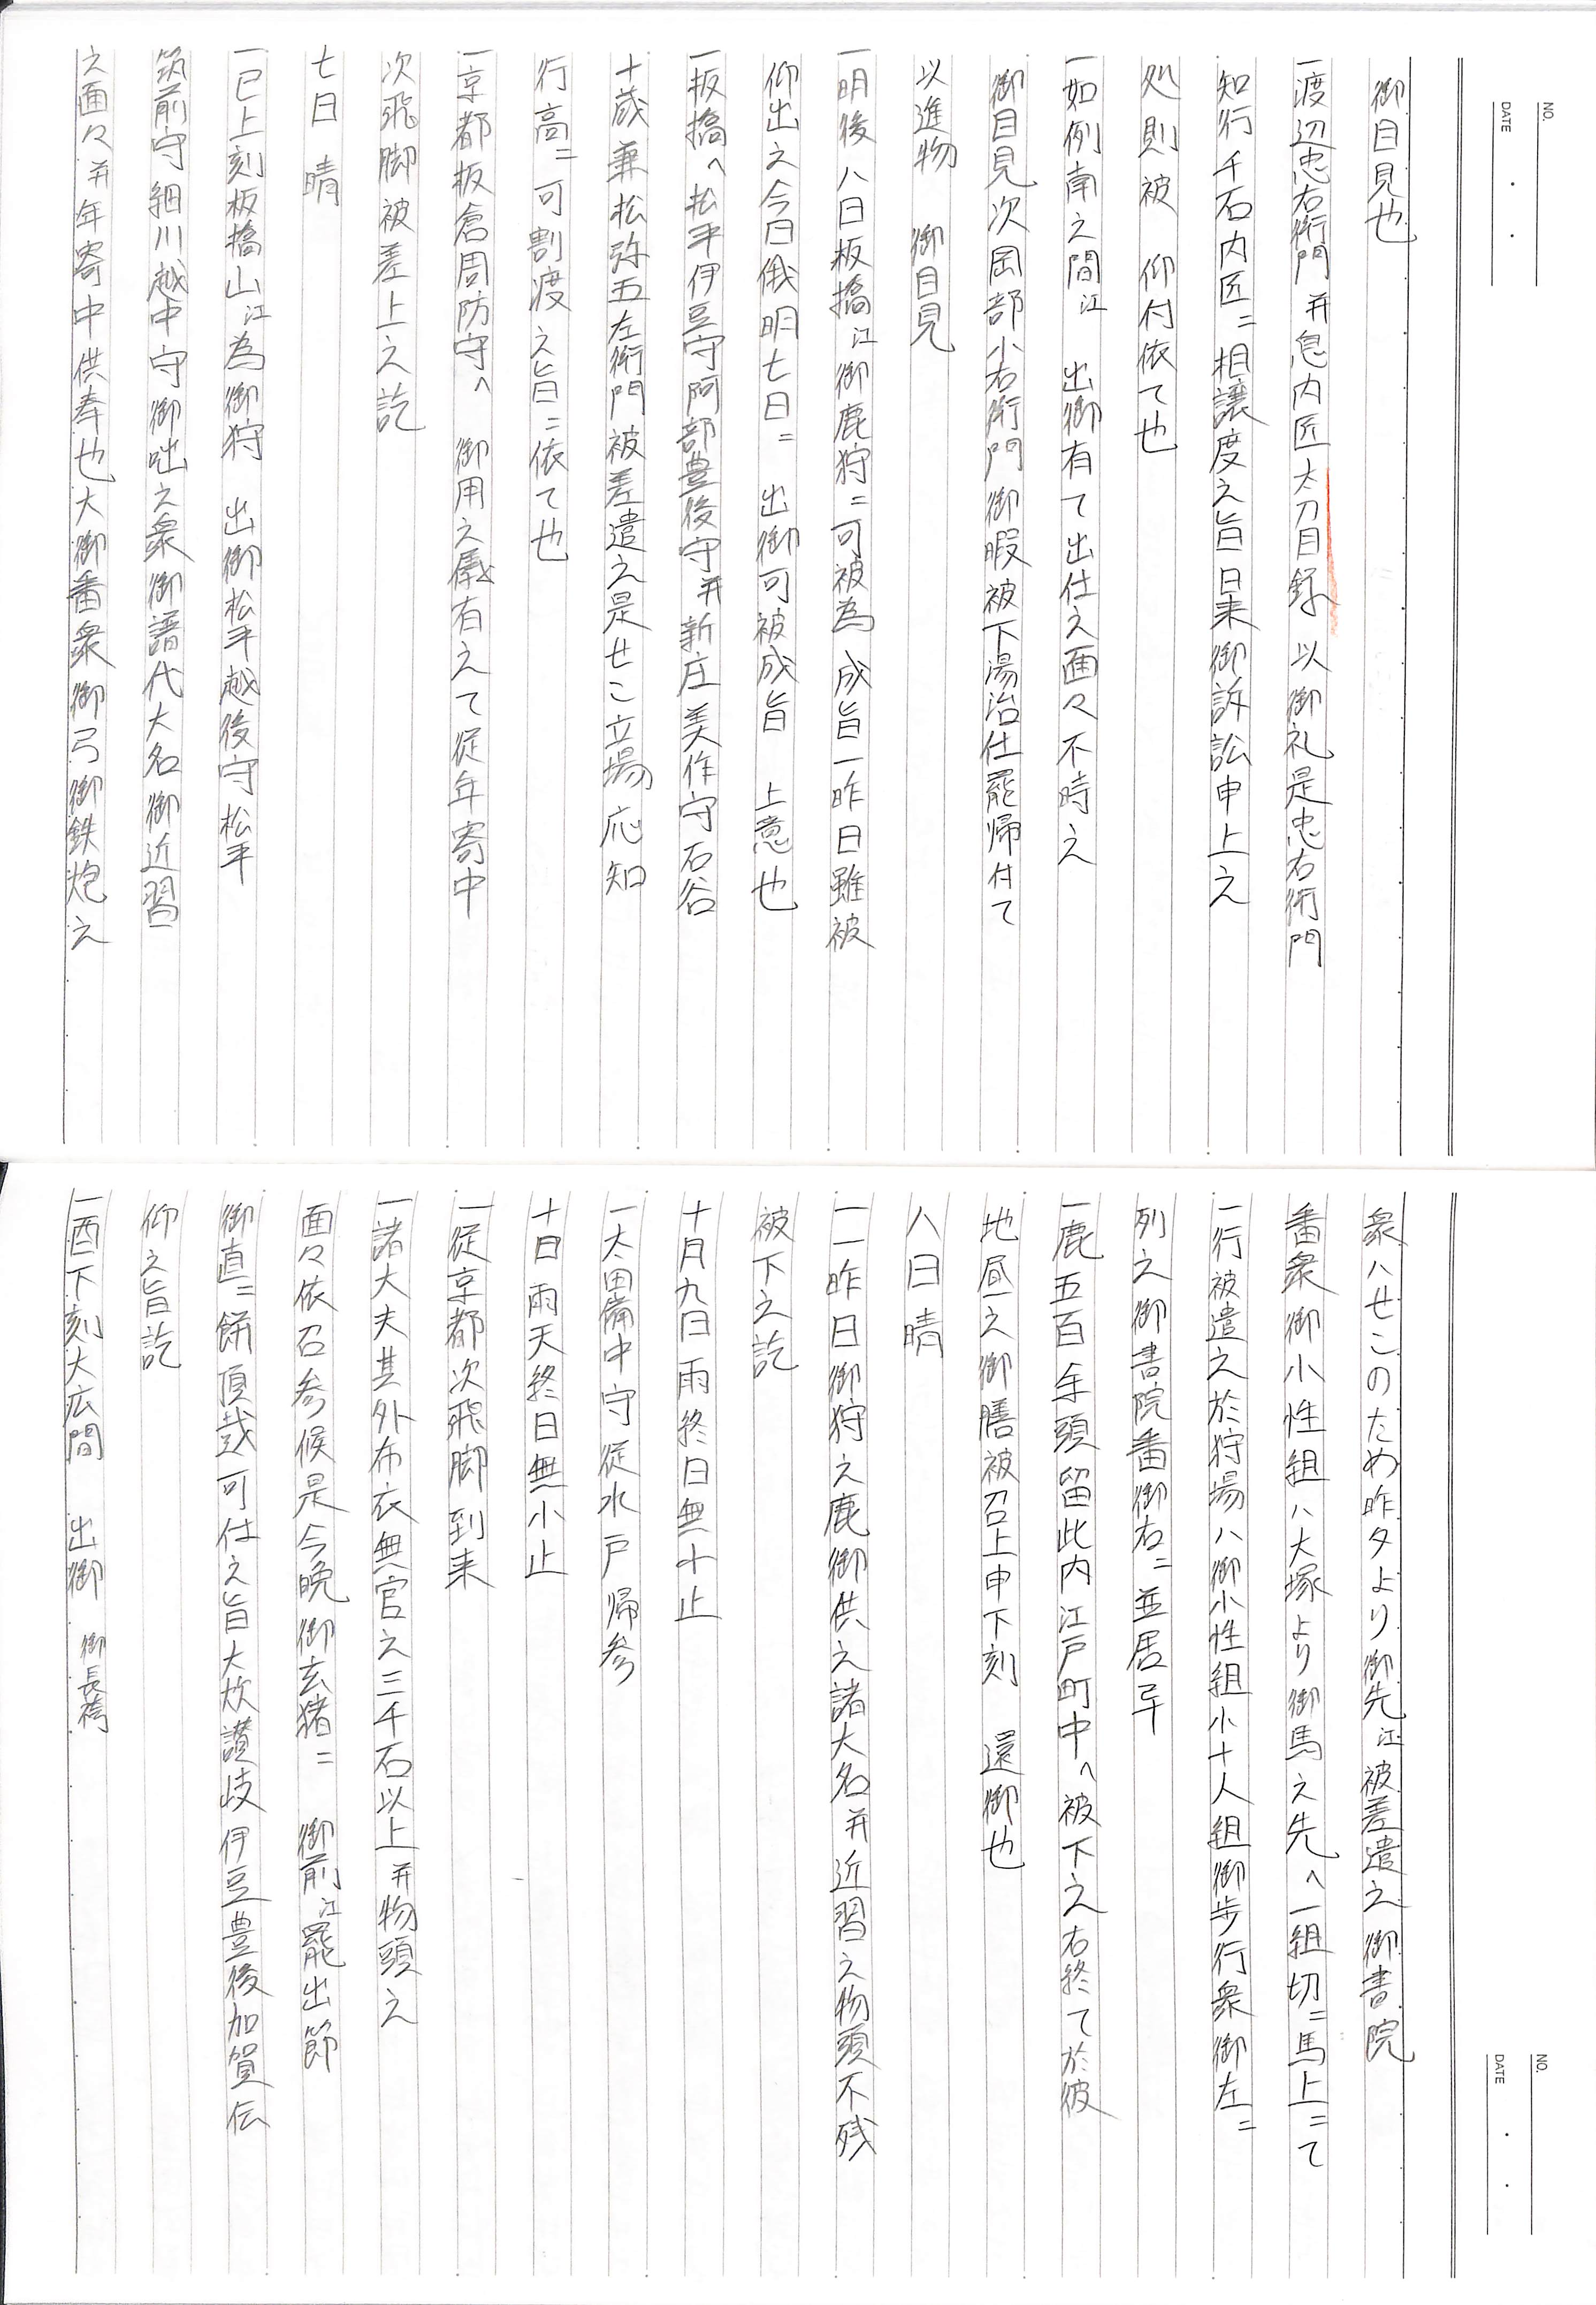 NO.
DATE ・ ・
御目見也
一渡辺忠右衛門并息内匠太刀目録以御礼是忠右衛門
知行千石内匠ニ相譲度之旨日来御訴訟申上之
処則被 仰付依て也
一如例南之間江 出御有て出仕之面々不時之
御目見次岡部小右衛門御暇被下湯治仕罷帰付て
以進物 御目見
一明後八日板橋江御鹿狩ニ可被為成旨一昨日雖被
仰出之今日俄明七日ニ 出御可被成旨 上意也
一板橋へ松平伊豆守阿部豊後守并新庄美作守石谷
十蔵兼松弥五左衛門被差遣之是せこ立場応知
行高ニ可割渡之旨ニ依て也
一京都板倉周防守へ 御用之儀有之て従年寄中
次飛脚被差上之訖
七日 晴
一巳上刻板橋山江為御狩 出御松平越後守松平
筑前守細川越中守御咄之衆御譜代大名御近習
之面々并年寄中供奉也大御番衆御弓御鉄炮之
NO.
DATE ・ ・
衆ハせこのため昨夕より御先江被差遣之御書院
番衆御小性組ハ大塚より御馬之先へ一組切ニ馬上ニて
一行被遣之於狩場ハ御小性組小十人組御歩行衆御左ニ
列之御書院番御右ニ並居
一鹿五百余頭留此内江戸町中へ被下之右終て於彼
地昼之御膳被召上申下刻 還御也
八日晴
一一昨日御狩之鹿御供之諸大名并近習之物頭不残
被下之訖
十月九日雨終日無小止
一太田備中守従水戸帰参
十日雨天終日無小止
一従京都次飛脚到来
一諸大夫其外布衣無官之三千石以上并物頭之
面々依召参候是今晩御玄猪ニ 御前江罷出節
御直ニ餅頂戴可仕之旨大炊讃岐伊豆豊後加賀伝
仰之旨訖
一酉下刻大広間 出御 御長袴